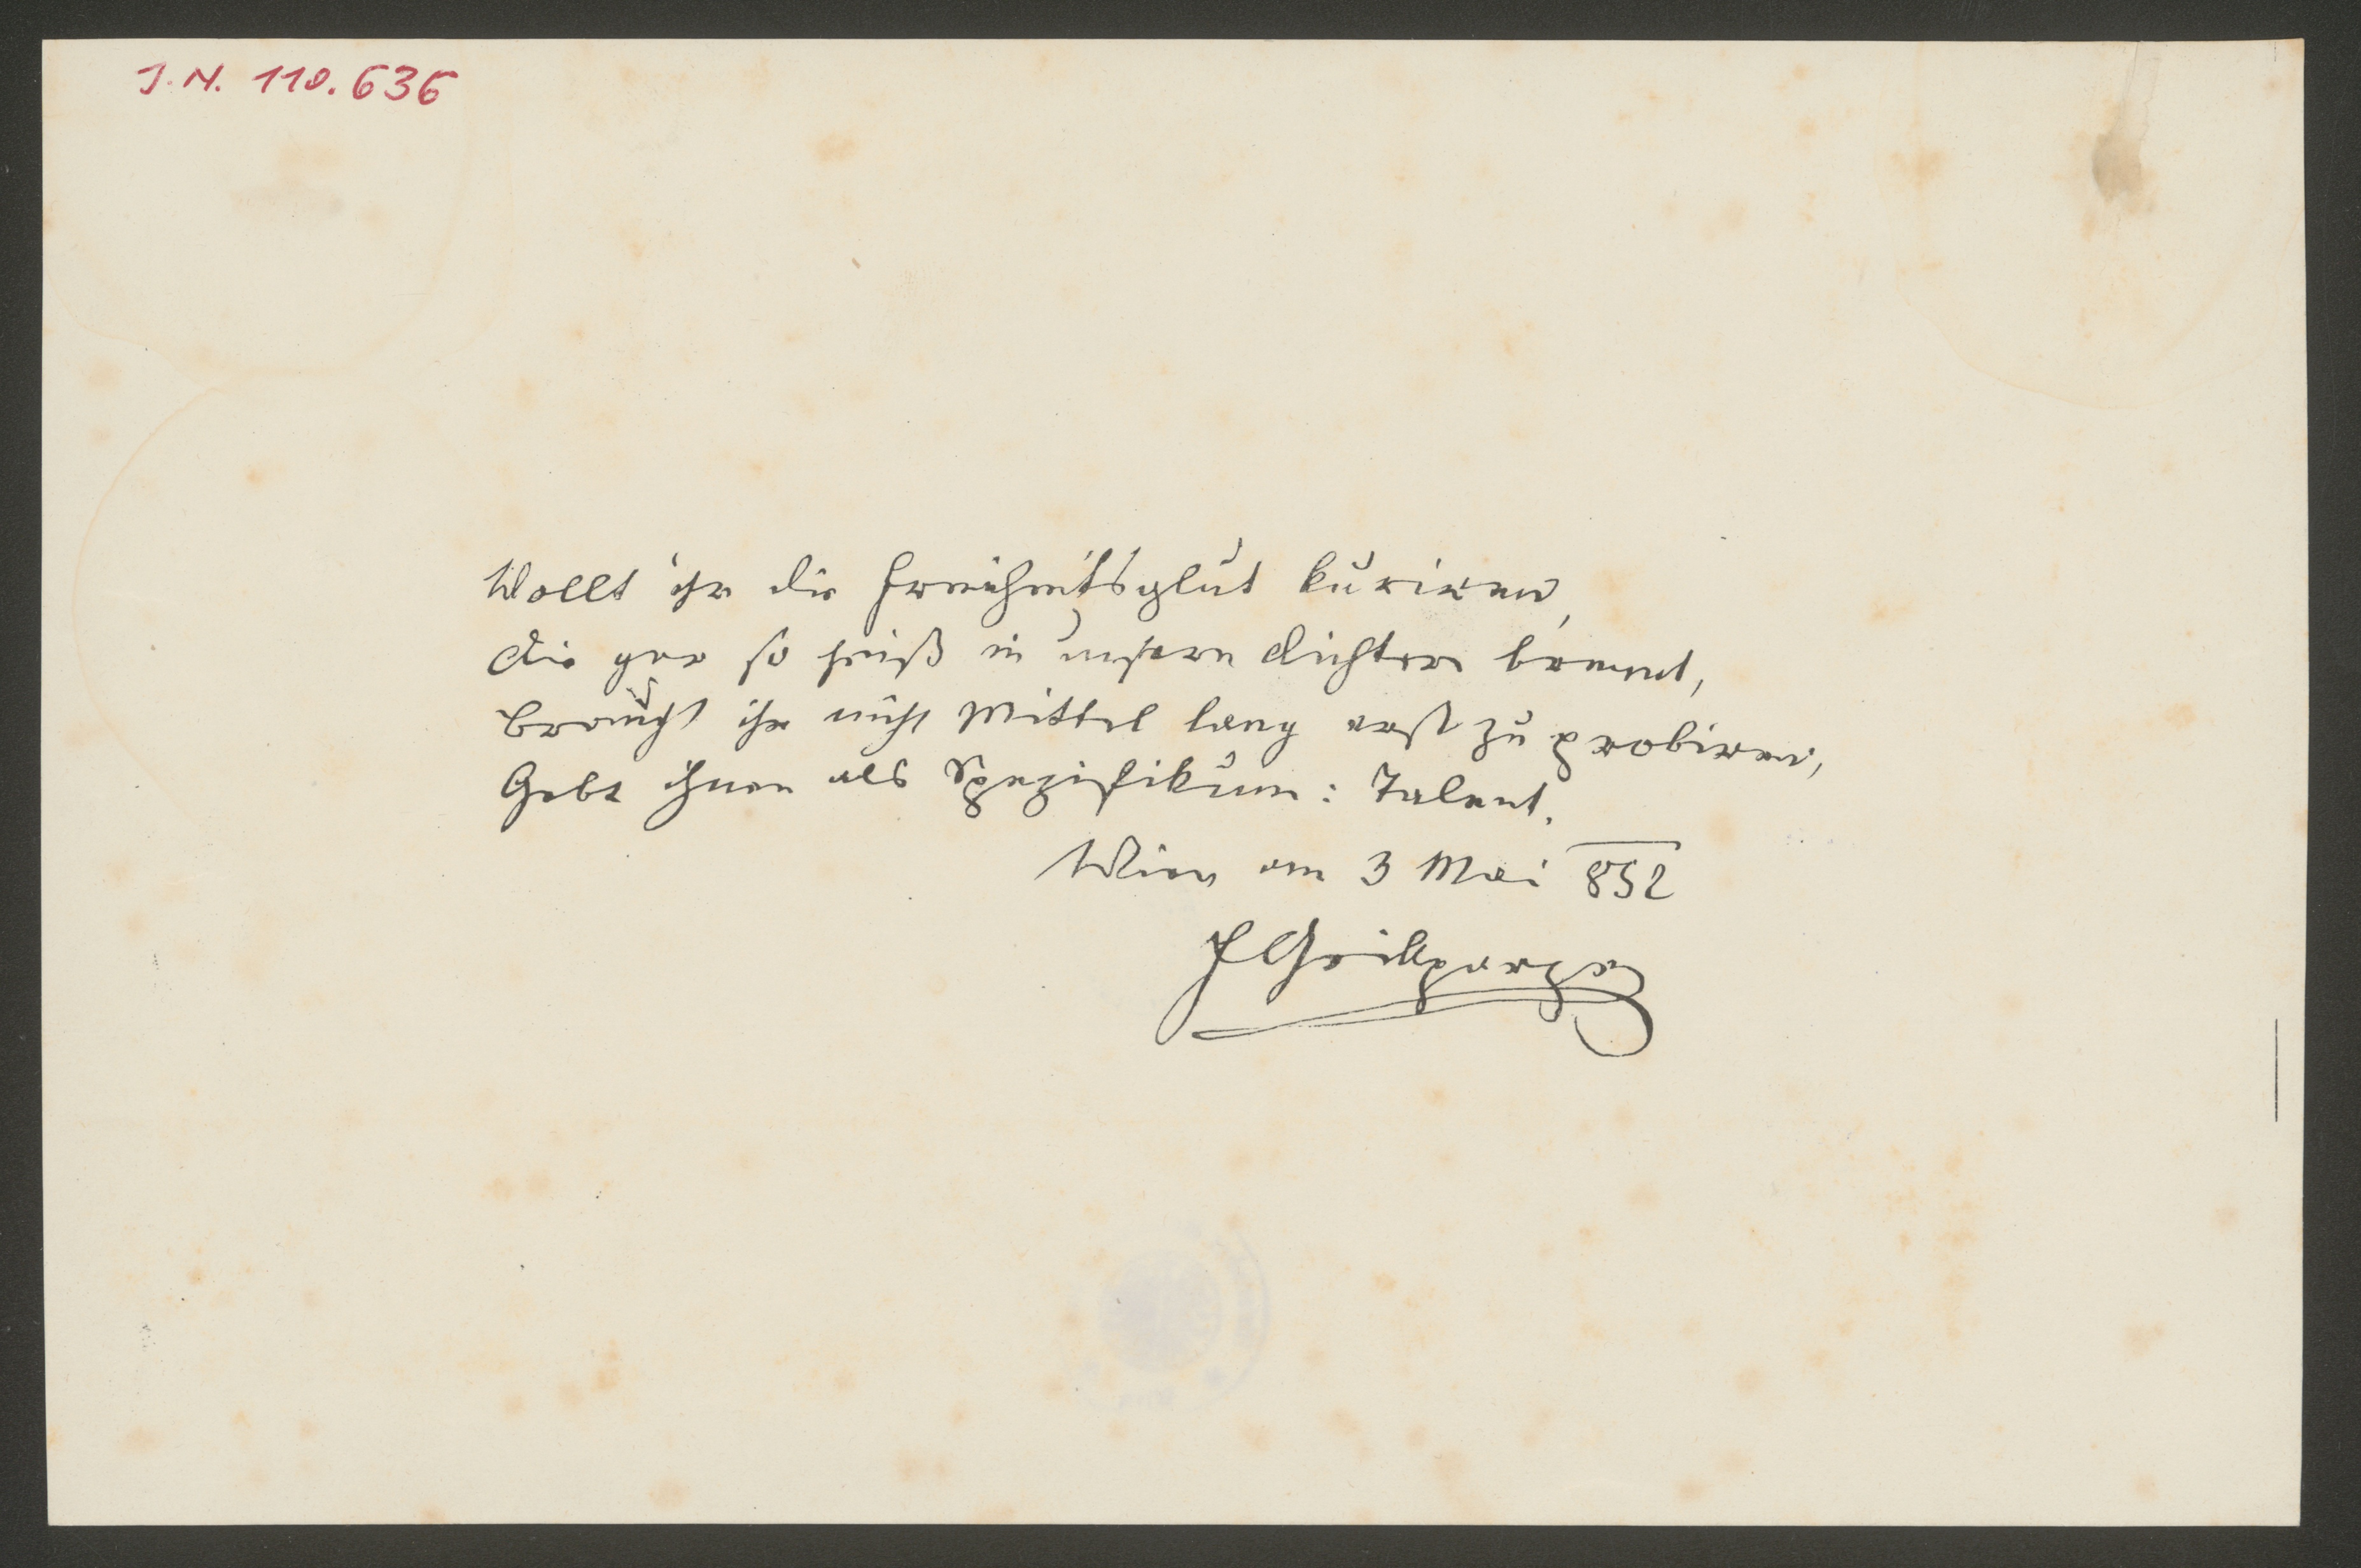 J. N. 110.636
Wollt ihr die Freiheitsglut kuriren,
Die gar so heiß in unsern Dichtern brennt,
Braucht ihr nicht Mittel lang erst zu probiren,
Gebt ihnen als Spezifikum: Talent.
Wien am 3 Mai 852
F Grillparzer